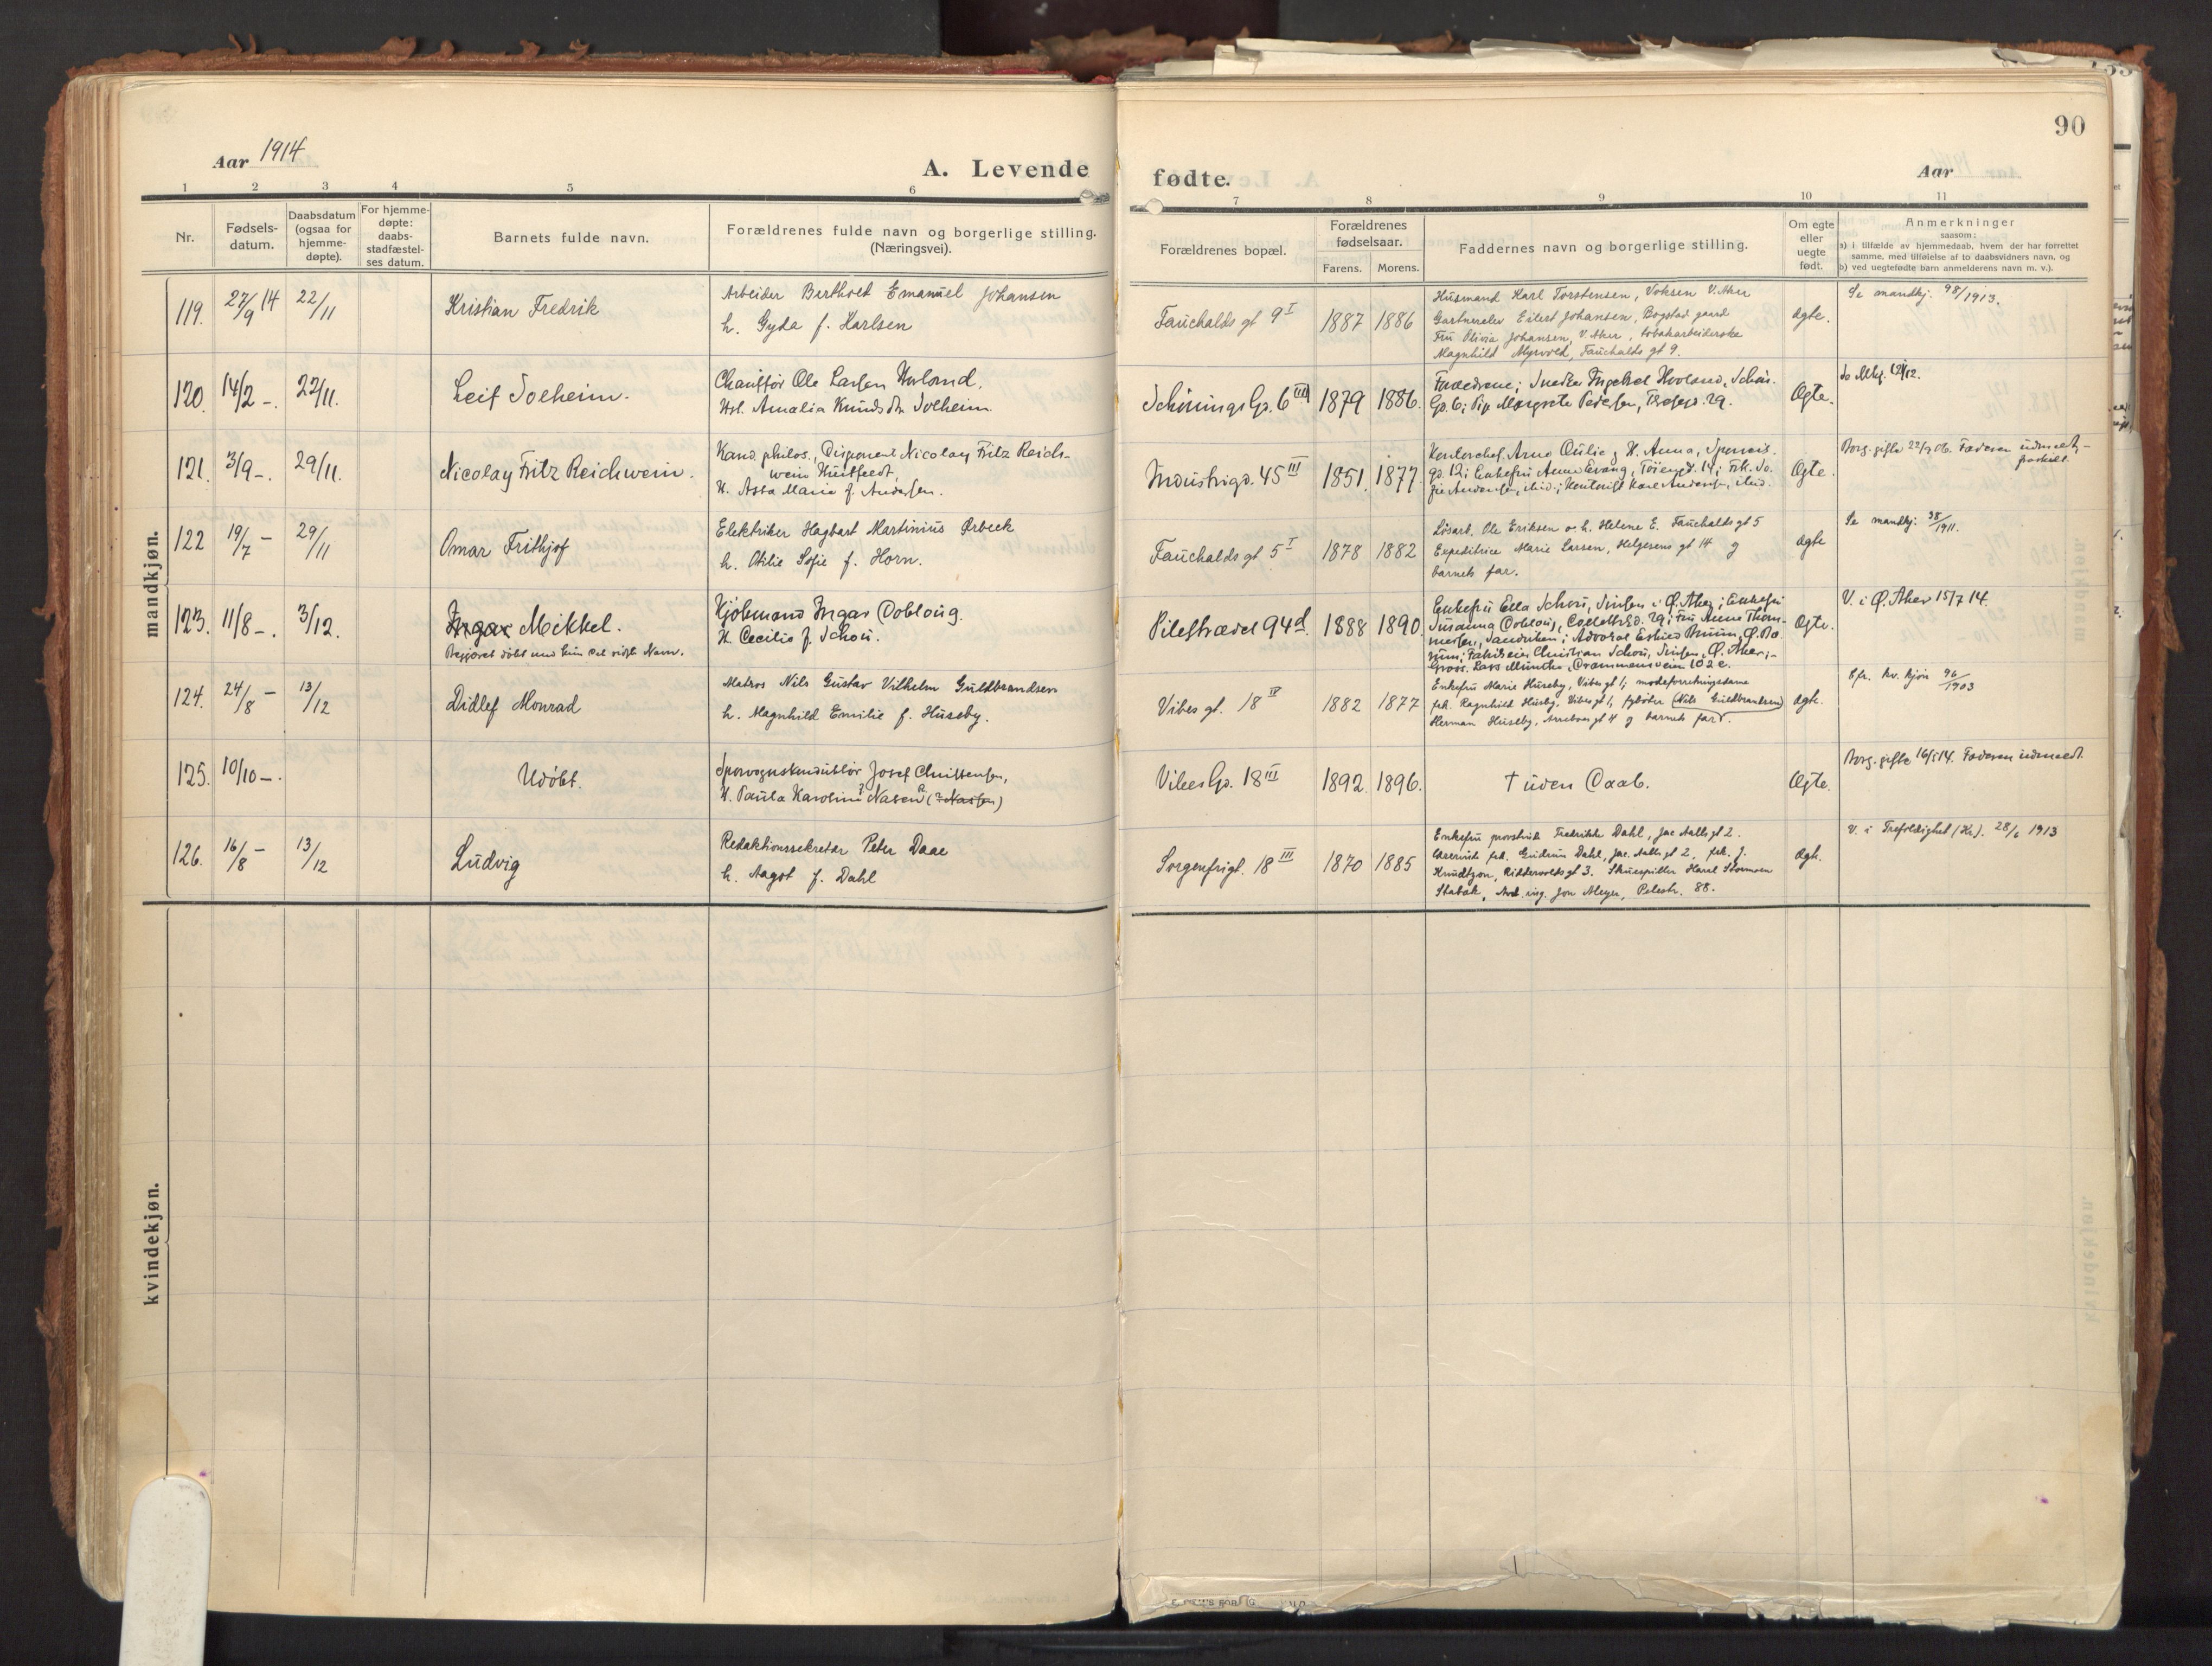 90
Aar 1914
A. Levende fødte.
Aar
1 2 3 4 5 6 7 8 9 10 11
Nr.
Fødsels-
datum.
Daabsdatum
(ogsaa for
hjemme-
døpte).
For hjemme-
døpte:
daabs-
stadfæstel-
ses datum.
Barnets fulde navn.
Forældrenes fulde navn og borgerlige stilling.
(Næringsvei).
Forældrenes bopæl.
Forældrenes
fødselsaar.
Farens. Morens.
Faddernes navn og borgerlige stilling.
Om egte
eller
uegte
født.
Anmerkninger
saasom:
a) i tilfælde av hjemmedaab, hvem der har forrettet
samme, med tilføielse af to daabsvidners navn, og
b) ved uegtefødte barn anmelderens navn m. v.).
mandkjøn.
119. 27/9 14 22/11
Kristian Fredrik
Arbeider Berthold Emanuel Johansen
h. Gyda f. Karlsen
Fauchalds gt 9 I
1887 1886
Husmand Karl Torstensen, Voksen V. Aker
Gartnerelev Eilert Johansen, Bogstad gaard
Fru Olivia Johansen, V. Aker, tobakarbeiderske
Magnhild Myrvold, Fauchalds gt 9.
ægte.
Se mandkj. 98/1913.
120. 14/2 -. 22/11.
Leif Solheim.
Chauffør Ole Larsen
Amalia Knudsdtr Solheim.
Schönings Gd. 6 III
1879 1886.
Forældrene;
Gd. 6; Margrete Pedersen,
Ægte.
121. 3/9 -. 29/11.
Nicolay Fritz Reichwein.
Kand. philos., Disponent Nicolay Fritz Reich-
wein Huitfeldt,
H. Asta Marie f. Andersen.
Industrigd. 45 III
1851. 1877.
Kontorchef Arne H. Anna,
gd. 12; Enkefru Anna Evang, Töiengd. 14; Frk. So-
fie Andersen, ibid.; Kontorist Karl Andersen, ibid.
Ægte.
Borg. gifte 22/9 06. Faderen udmeldt
122 19/7 - 29/11
Omar Frithjof
Elektriker Hagbart Martinius Ørbeck
h. Otilie Sofie f. Horn.
Fauchalds gt 5 I
1878 1882
Løsarb. Ole Eriksen o. h. Helene E. Fauchalds gt 5
Expeditrice Marie Larsen, Helgesens gt 14 og
barnets far.
ægte
Se mandkj. 38/1911.
123. 11/8 -. 3/12.
Ingar Mikkel.
Begjæret døbt med kun det sidste Navn.
Kjøbmand Ingar Dobloug.
H. Cecilie f. Schou.
Pilestrædet 94 d.
1888 1890
Enkefru Ella Schou, Sinsen i Ø. Aker; Enkefru
Susanna Dobloug, 29; Fru Anna Thom-
mesen, Sandviken; Advokat Eskild Bruun, Ø. Bæ-
rum; Fabrikeier Christian Schou, Sinsen, Ø. Aker;
Gross. Lars Munthe, Drammensveien 102 c.
Ægte.
V. i Ø. Aker 15/7 14.
124. 24/8 - 13/12
Didlef Monrad
Matros Nils Gustav Vilhelm Guldbrandsen
h. Magnhild Emilie f. Huseby.
Vibes gt. 18 IV
1882 1877
Enkefru Marie Huseby, Vibes gt 1; modeforretningsdame
frk. Ragnhild Huseby, Vibes gt 1, fyrbøter (Nils Guldbrandsen)
Herman Huseby, gt 4 og barnets far.
ægte.
Cfr. kv. kjøn 96/1903
125. 10/10 -.
Udöbt.
Sporvognskonduktör Josef Christensen,
H. Paula Karoline Nasen (? Nassen)
Vibes Gd. 18 III
1892. 1896.
† uden Daab.
Ægte.
Borg. gifte 16/5 14. Faderen udmeldt.
126. 16/8 - 13/12
Ludvig
Redaktionssekretær Peter Daae
h. Aagot f. Dahl
Sorgenfrigt. 18 III
1870 1885
Enkefru provstinde Fredrikke Dahl, Jac Aalls gt 2.
Lærerinde frk. Gudrun Dahl, Jac. Aalls gt 2, frk. J.
Knudtzon, Riddervolds gt 3. Skuespiller Harald Stormoen
Stabæk, Avd. ing. Jon Meyer, Pilestr. 88.
ægte.
V. i Trefoldighet (Kr). 28/6 1913
kvindekjøn.